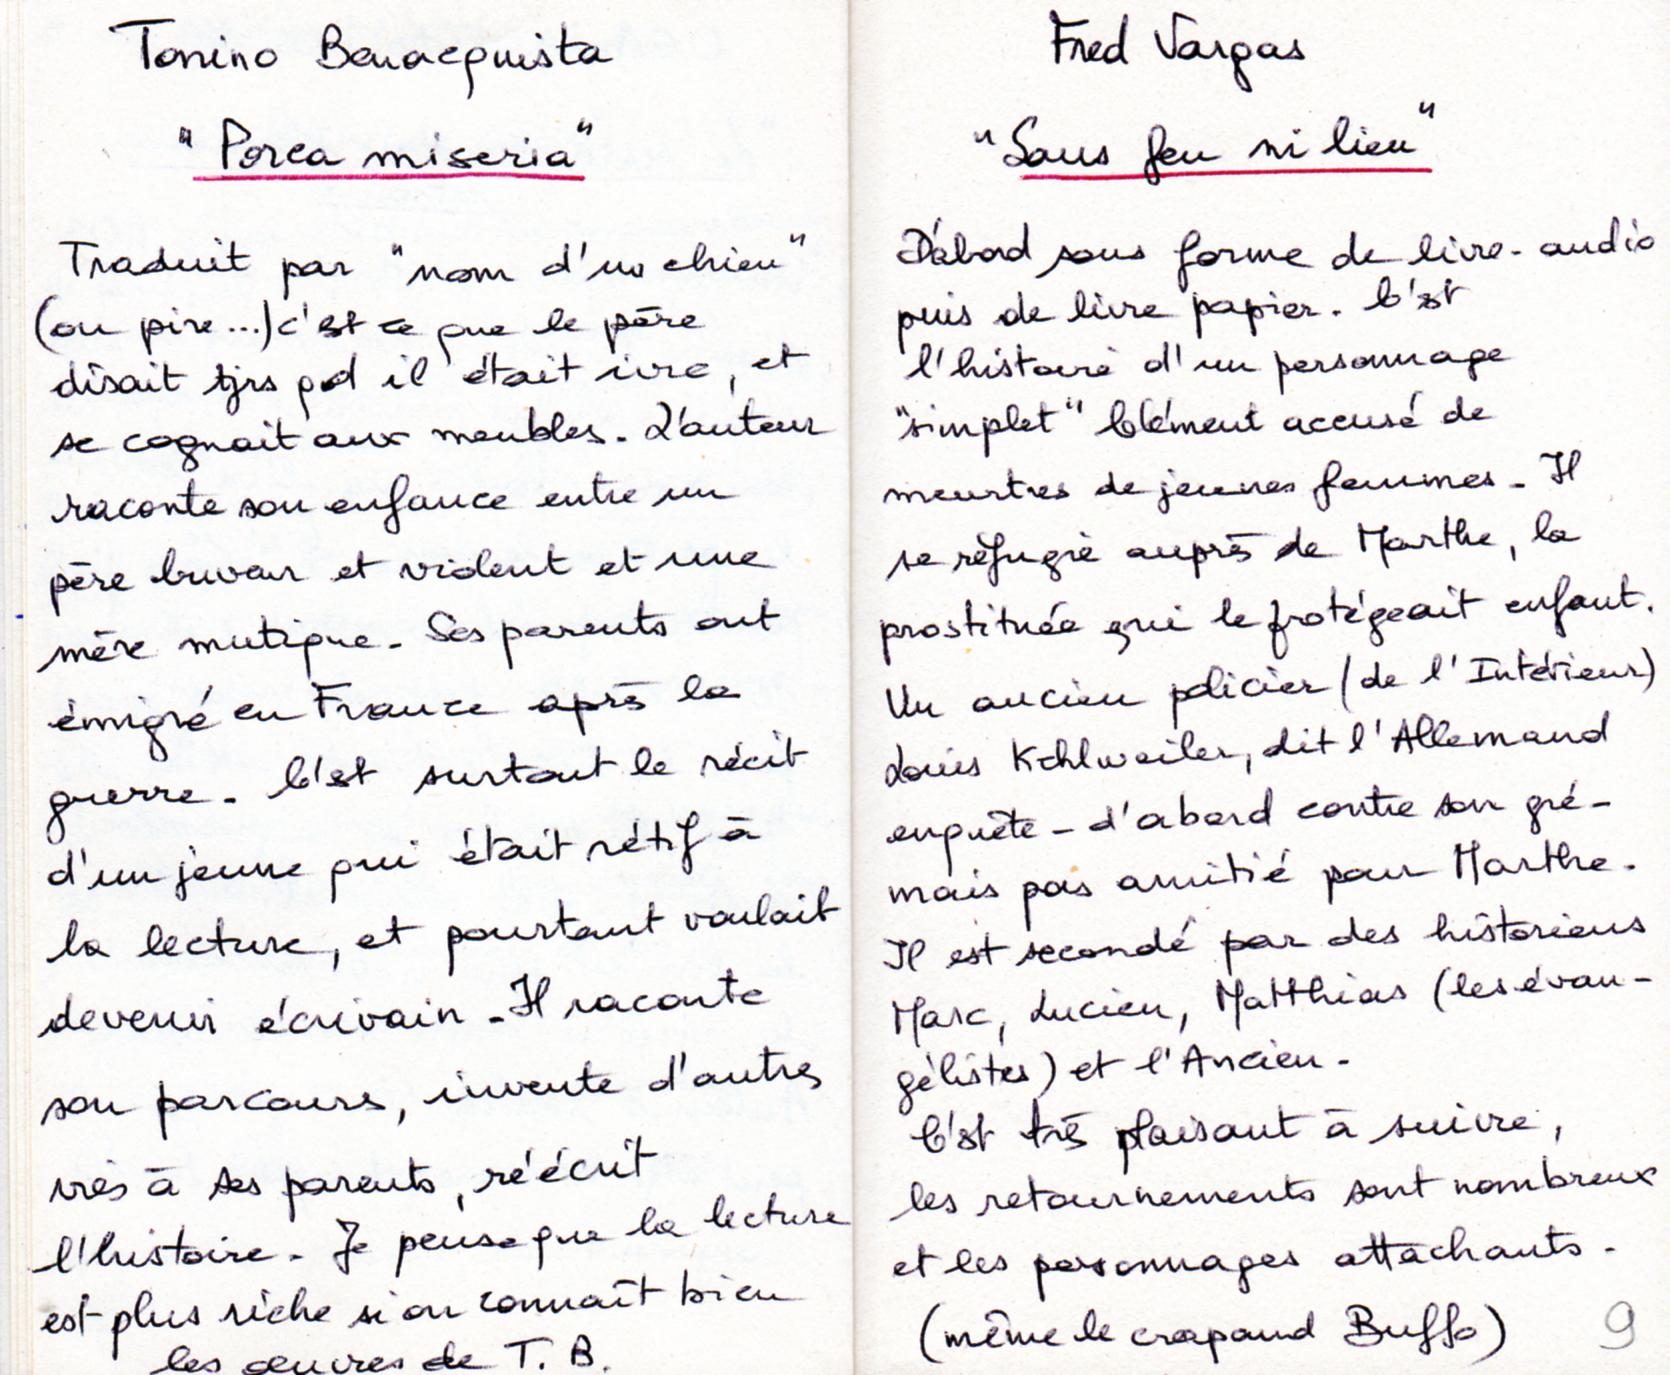 Tonino Benacquista
"Porca miseria"
Traduit par "nom d'un chien"
(ou pire...) c'est ce que le père
disait tjrs qd il était ivre, et
se cognait aux meubles. L'auteur
raconte son enfance entre un
père buveur et violent et une
mère mutique. Ses parents ont
émigré en France après la
guerre. C'est surtout le récit
d'un jeune qui était rétif à
la lecture, et pourtant voulait
devenir écrivain. Il raconte
son parcours, invente d'autres
vies à ses parents, réécrit
l'histoire. Je pense que la lecture
est plus riche si on connaît bien
les œuvres de T. B.
Fred Vargas
"Sans feu ni lieu"
D'abord sous forme de livre-audio
puis de livre papier. C'est
l'histoire d'un personnage
"simplet" Clément accusé de
meurtres de jeunes femmes. Il
se réfugie auprès de Marthe, la
prostituée qui le protégeait enfant.
Un ancien policier (de l'Intérieur)
Louis Kehlweiler, dit l'Allemand
enquête - d'abord contre son gré -
mais pas amitié pour Marthe.
Il est secondé par des historiens
Marc, Lucien, Matthias (les évan-
gélistes) et l'Ancien.
C'est très plaisant à suivre,
les retournements sont nombreux
et les personnages attachants.
(même le crapaud Buffo)
9